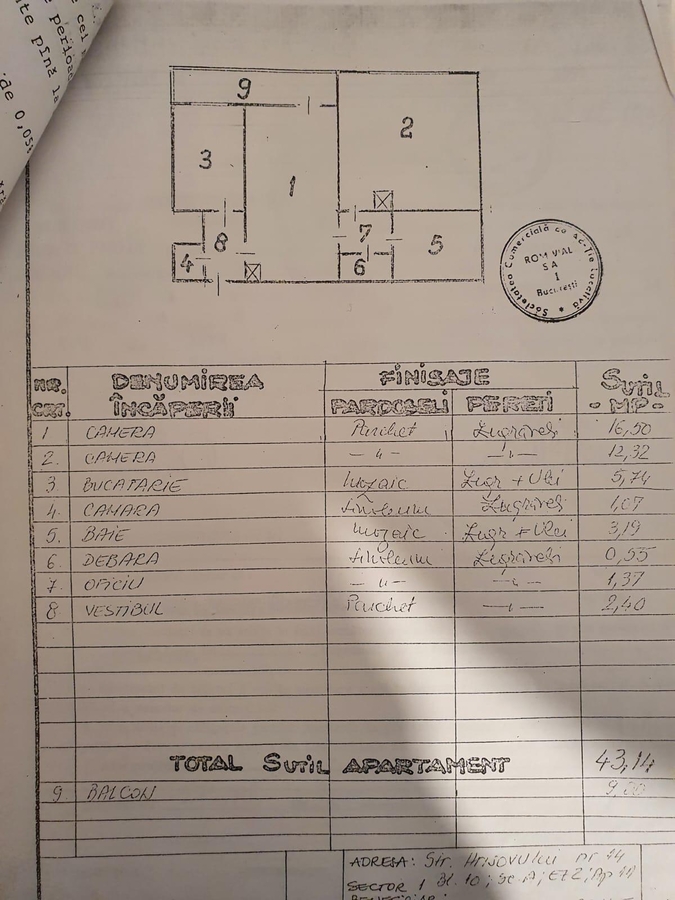 9
2
3
1
7
8
5
4
6
Societatea Comercială cu acție Lucativă
ROM VIAL
SA
1
București
NR. CRT. DENUMIREA ÎNCĂPERII FINISAJE SUTIL - MP -
PARDOSELI PERETI
1 CAMERA Parchet Zugrăveli 16,50
2. CAMERA — " — — " — 12,32
3. BUCATARIE Mozaic Zugr + Ulei 5,74
4. CAMARA Linoleum Zugrăveli 1,07
5. BAIE Mozaic Zugr + Ulei 3,19
6 DEBARA Linoleum Zugrăveli 0,55
7. OFICIU — " — — " — 1,37
8 VESTIBUL Parchet — " — 2,40
TOTAL SUTIL APARTAMENT 43,14
9 BALCON 9,00
ADRESA: Str. Hrisovului nr
SECTOR 1 Bl. 10; Sc. A; ET 2; Ap 11